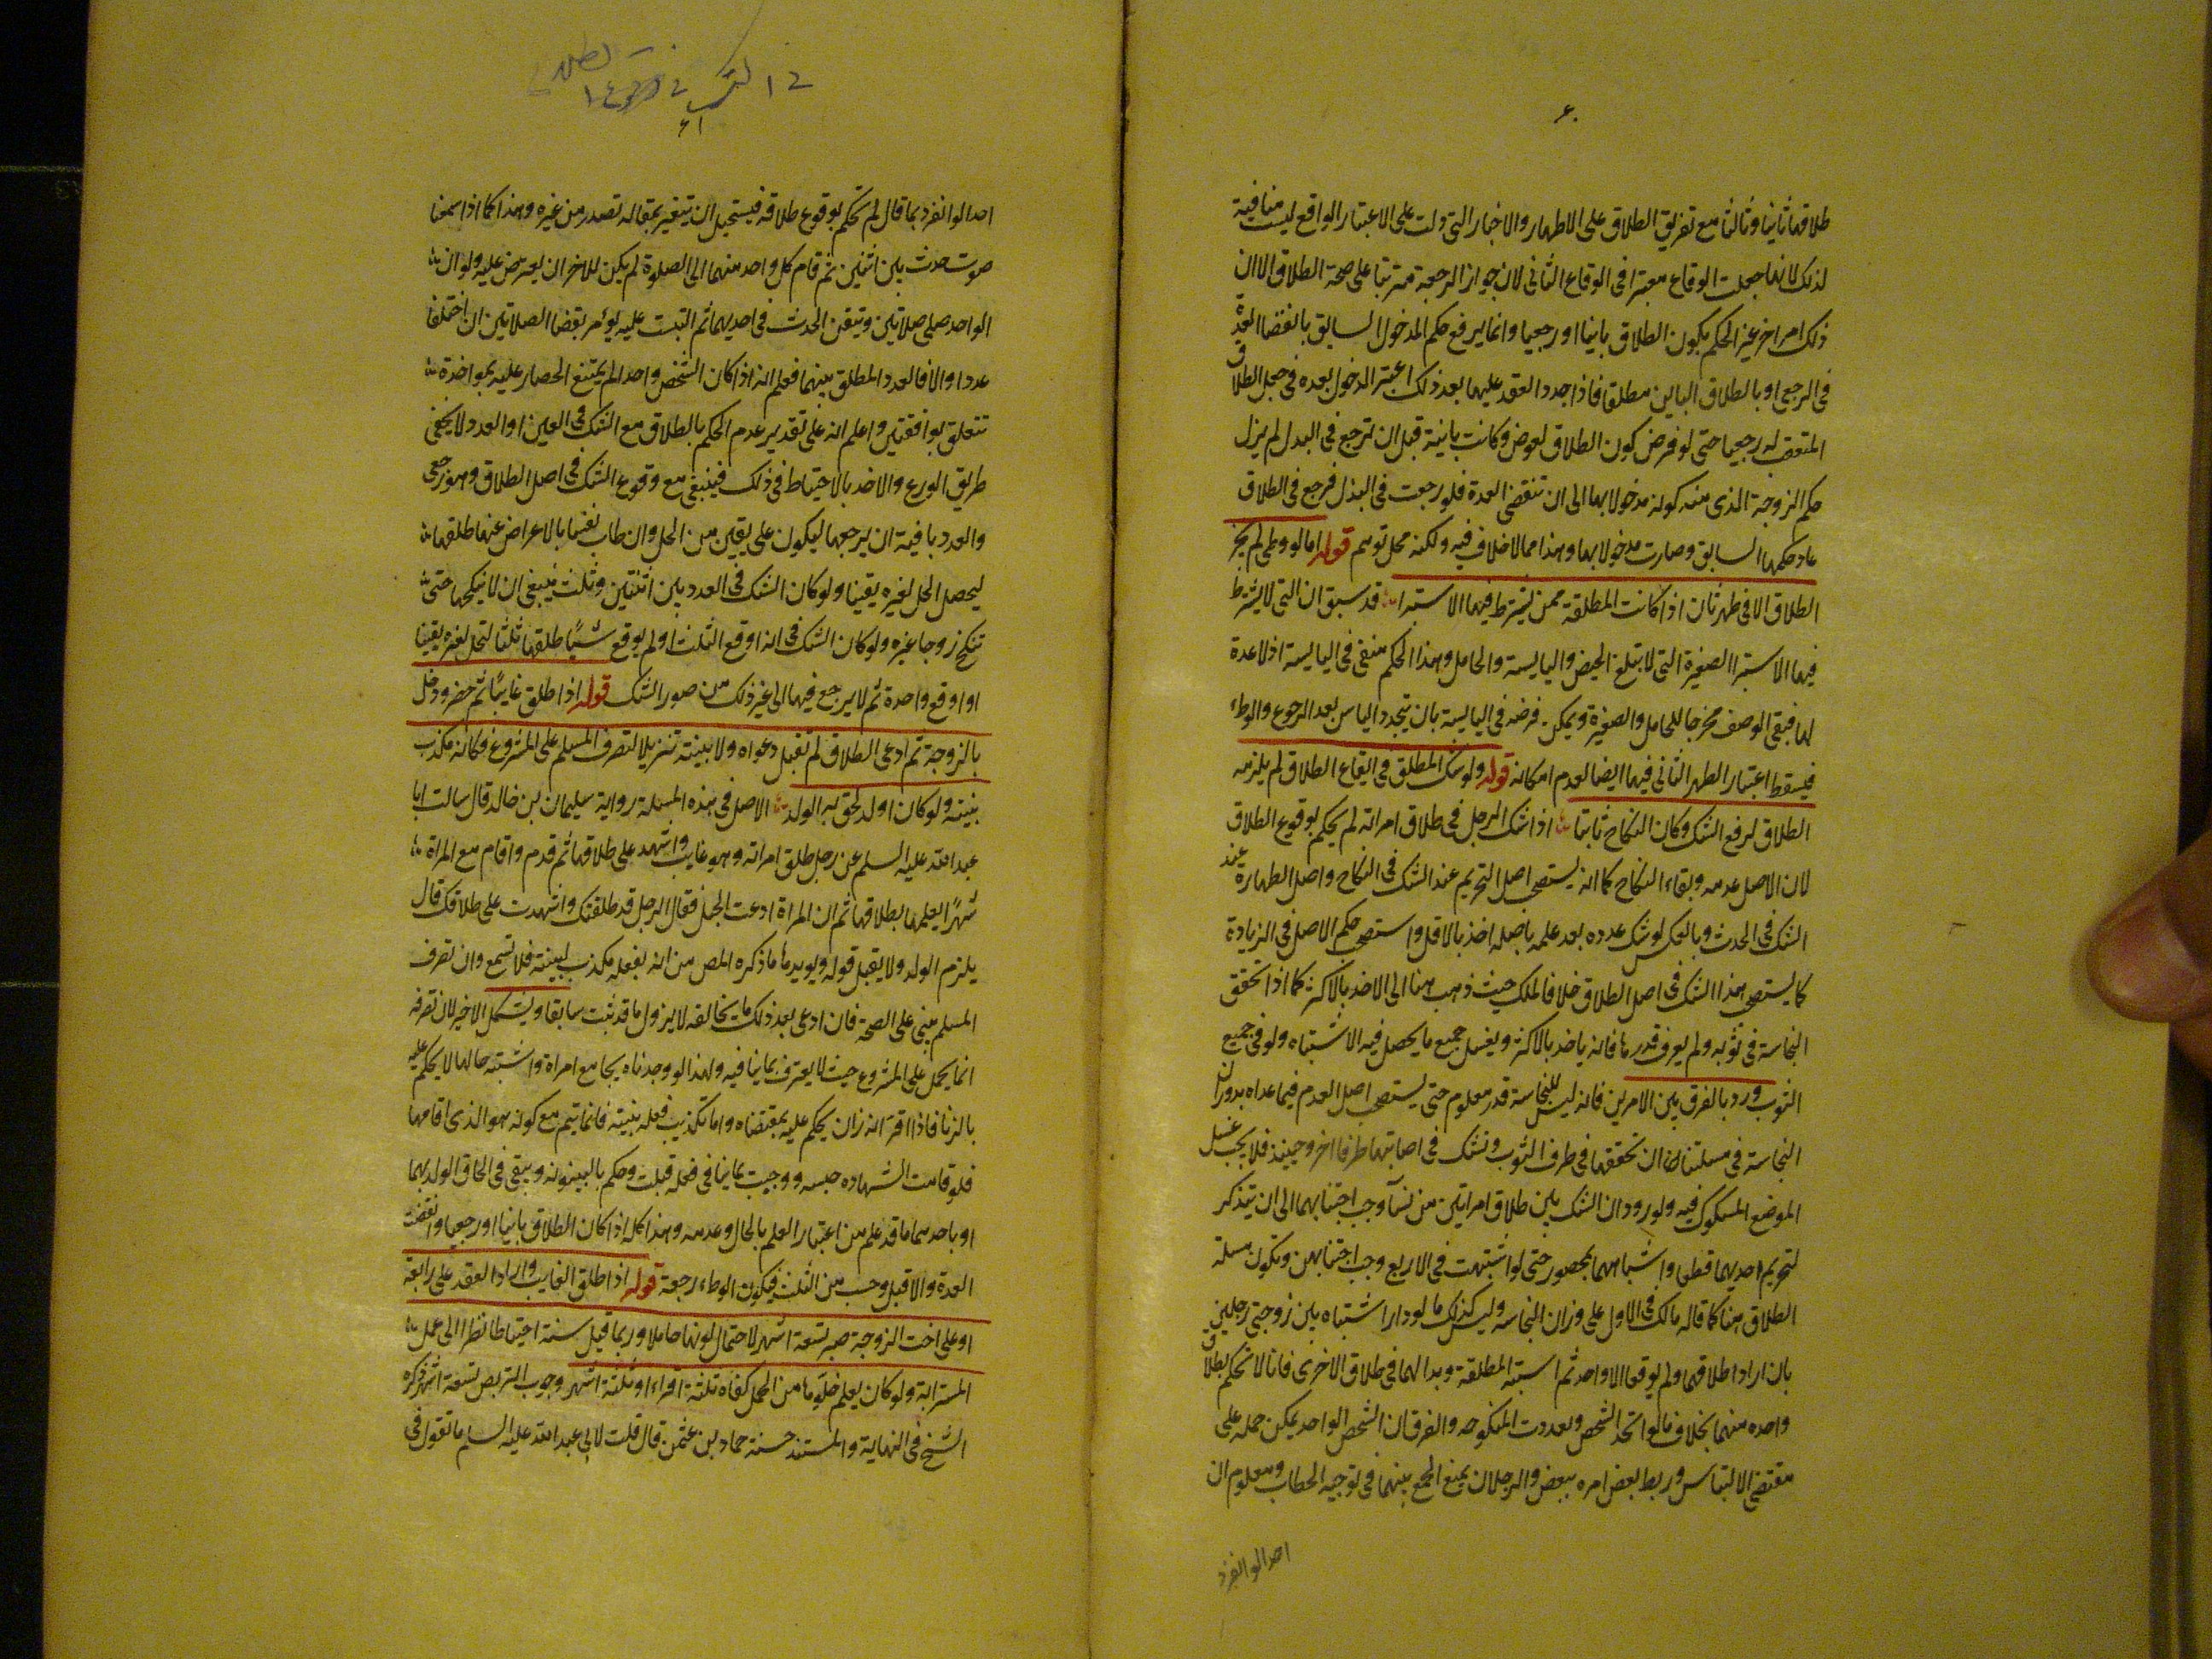 ٦٠
طلاقها ثانيا وثالثا مع تفريق الطلاق على الاطهار والاخبار التى دلت على الاعتبار الواقع ليست منافية
لذلك لانها جعلت الوقاع معتبرا فى الوقاع الثانى لان جواز الرجعة مترتبا على صحة الطلاق الا ان
ذلك امر اخر غير الحكم بكون الطلاق باينا او رجعيا وانما يرفع حكم الدخول السابق بانقضا العدة
فى الرجعى او بالطلاق الباين مطلقا فاذا جدد العقد عليها بعد ذلك اعتبر الدخول بعده فى جعل الطلاق
المتعقب له رجعيا حتى لو فرض كون الطلاق لعوض وكانت باينة قبل ان ترجع فى البدل لم يزل
حكم الزوجة الذى منه كونه مدخولا بها الى ان تنقضى العدة فلو رجعت فى البذل فرجع فى الطلاق
عاد حكمها السابق وصارت مدخولا بها وهذا مما لا خلاف فيه ولكنه محل توهم قوله اما لو وطى لم يجز
الطلاق الا فى طهر ثان اذا كانت المطلقة ممن يشترط فيها الاستبرا قد سبق ان التى لا يشترط
فيها الاستبرا الصغيرة التى لا تبلغ الحيض واليايسة والحامل وهذا الحكم منفى فى اليايسة اذ لا عدة
لها فبقى الوصف مخرجا للحامل والصغيرة ويمكن فرضه فى اليايسة بان يتجدد الياس بعد الرجوع والوطء
فيسقط اعتبار الطهر الثانى فيها ايضا لعدم امكانه قوله ولو شك المطلق فى ايقاع الطلاق لم يلزمه
الطلاق لرفع الشك وكان النكاح ثابتا اذا شك الرجل فى طلاق امراته لم يحكم بوقوع الطلاق
لان الاصل عدمه وبقاء النكاح كما انه يستصحب اصل التحريم عند الشك فى النكاح واصل الطهارة عند
الشك فى الحدث وبالعكس لو شك عدده بعد علمه باصله اخذ بالاقل واستصحب حكم الاصل فى الزيادة
كما يستصحب هذا الشك فى اصل الطلاق خلافا لملك حيث ذهب هنا الى الاخذ بالاكثر كما اذا تحقق
النجاسة فى ثوبه ولم يعرف قدرها فانه ياخذ بالاكثر ويغسل جميع ما يحصل فيه الاشتباه ولو فى جميع
الثوب ورد بالفرق بين الامرين فانه ليس للنجاسة قدر معلوم حتى يستصحب اصل العدم فيما عداه بدوران
النجاسة فى مسلتنا ان تحققها فى طرف الثوب ونشك فى اصابتها طرفا اخر وحينئذ فلا يجب غسل
الموضع المشكوك فيه ولو رودان الشك بين طلاق امراتين من نسآ وجب اجتنابهما الى ان يتذكر
لتحريم احديهما قطعا واشتباههما بمحصور حتى لو اشتبهت فى الاربع وجب اجتنابهن وتكون مسلة
الطلاق هنا كما قاله مالك فى الاول على وزان النجاسه وليس كذلك ما لو دار اشتباه بين زوجتى رجلين
بان ارادا طلاقهما ولم يوقعا الا واحد ثم اشتبه المطلقة وبدا لهما فى طلاق الاخرى فانا لا نحكم بطلاق
واحده منهما بخلاف ما لو اتحد الشخص وتعددت المنكوحه والفرق ان الشخص الواحد يمكن حمله على
مقتضى الالتباس وربط بعض امره ببعض والرجلان يمنع الجمع بينهما فى توجيه الخطاب ومعلوم ان
احدا لو انفرد
٦١
احدا لو انفرد بما قال لم نحكم بوقوع طلاقه فيستحيل ان يتغير بمقاله تصدر من غيره وهذا كما اذا سمعنا
صوت حدث بين اثنين ثم قام كل واحد منهما الى الصلوة لم يكن للاخر ان يعترض عليه ولو ان
الواحد صلى صلاتين وتيقن الحدث فى احديهما ثم التبست عليه يؤمر بقضا الصلاتين ان اختلفا
عددا والا فالعدد المطلق بينهما فعلم انه اذا كان الشخص واحدا لم يمتنع الحصار عليه بمواخذة
تتعلق بواقعتين واعلم انه على تقدير عدم الحكم بالطلاق مع الشك فى العين او العدد لا يخفى
طريق الورع والاخذ بالاحتياط فى ذلك فينبغى مع وقوع الشك فى اصل الطلاق وهو رجعى
والعدد باقية ان يرجعها ليكون على يقين من الحل وان طاب نفسا بالاعراض عنها طلقها
ليحصل الحل لغيره يقينا ولو كان الشك فى العدد بين اثنتين وثلث ينبغى ان لا ينكحها حتى
تنكح زوجا غيره ولو كان الشك فى انه اوقع الثلث او لم يوقع شيئا طلقها ثلثا لتحل لغيره يقينا
او اوقع واحدة ثم لا يرجع فيها الى غير ذلك من صور الشك قوله اذا طلق غايبا ثم حضر ودخل
بالزوجة ثم ادعى الطلاق لم تقبل دعواه ولا بينته تنزيلا لتصرف المسلم على المشروع فكانه مكذب
بينته ولو كان اولد لحق به الولد الاصل فى هذه المسئلة رواية سليمان بن خالد قال سالت ابا
عبد الله عليه السلم عن رجل طلق امراته وهو غايب واشهد على طلاقها ثم قدم واقام مع المراة
شهرا لم يعلمها بطلاقها ثم ان المراة ادعت الحبل فقال الرجل قد طلقتك واشهدت على طلاقك قال
يلزم الولد ولا يقبل قوله ويويدها ما ذكره المص من انه بفعله مكذب لبينته فلا تسمع وان تصرف
المسلم مبنى على الصحة فان ادعى بعد ذلك ما يخالفه لا يزول ما قد ثبت سابقا ويشكل الاخير لان تصرفه
انما يحمل على المشروع حيث لا يعترف بما ينافيه ولهذا لو وجدناه يجامع امراة واشتبه حالها لا يحكم عليه
بالزنا فاذا اقر انه زان يحكم عليه بمقتضاه واما تكذيب فعله بينته فانما يتم مع كونه هو الذى اقامها
فلو قامت الشهاده حسبه ووجبت بما ينافى فعله قبلت وحكم بالبينونه ويبقى فى الحاق الولد بهما
او باحدهما ما قد علم من اعتبار العلم بالحال وعدمه وهذا كله اذا كان الطلاق باينا او رجعيا وانقضت
العدة والا قبل وحسب من الثلث فيكون الوطء رجعة قوله اذا طلق الغايب واراد العقد على رابعة
او على اخت الزوجة صبر تسعة اشهر لاحتمال كونها حاملا وربما قيل سنة احتياطا نظرا الى حمل
المسترابة ولو كان يعلم خلوها من الحمل كفاه ثلثة اقراء او ثلثة اشهر وجوب التربص تسعة اشهر ذكره
الشيخ فى النهاية والمستند حسنة حماد بن عثمن قال قلت لابى عبد الله عليه السلم ما تقول فى